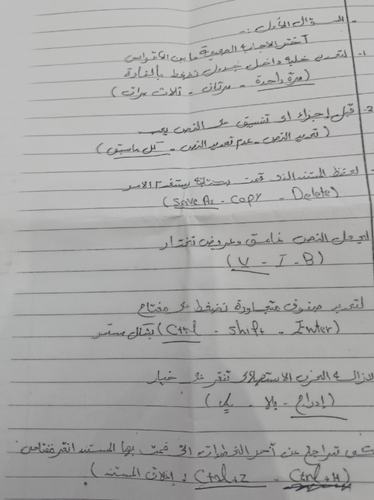 السؤال الأول :-
أختر الاجابه الصحيحة ما بين الأقواس
1- لتحديد خلية داخل جدول نضغط بالفارة
( مرة واحدة - مرتان - ثلاث مرات )
2- قبل إجراء أي تنسيق على النص يجب
( تحديد النص - عدم تحديد النص - كل ماسبق )
لحفظ المستند الذي قمت بكتابته يستخدم الامر
( Save As - Copy - Delete )
لجعل النص غامق وعريض نختار
( U - I - B )
لتحديد صفوف متجاورة نضغط على مفتاح
( Ctrl - Shift - Inter ) بشكل مستمر
لازالة الحزن الاستهلالي ننقر على خيار
( إدراج - بلا - )
تراجع عن آخر الخطوات التي قمت بها المستند انقر مفتاحين
( Ctrl+Z - Ctrl+H ، إغلاق المستند )